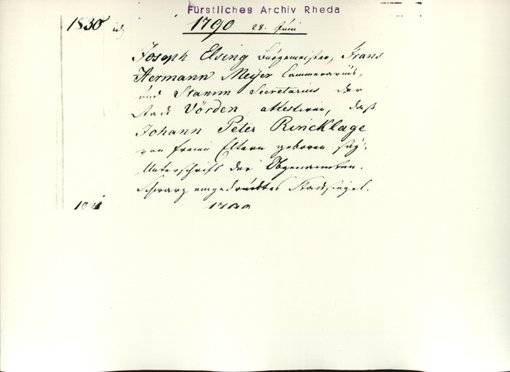 Fürstliches Archiv Rheda
1830 1790 28. Juni
Joseph Elsing Bürgermeister, Franz
Hermann Meyer Cammerarius,
und Stamm Secretarius der
Stadt Vörden attestiren, daß
Johann Peter Rincklage
von freien Eltern geboren sey.
Unterschrift der Obgenannten.
Schwarz eingedrücktes Stadtsiegel.